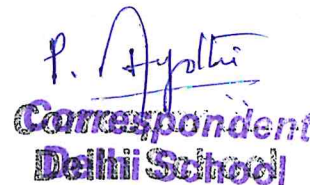 P. Ayothi
Correspondent
Delhi School